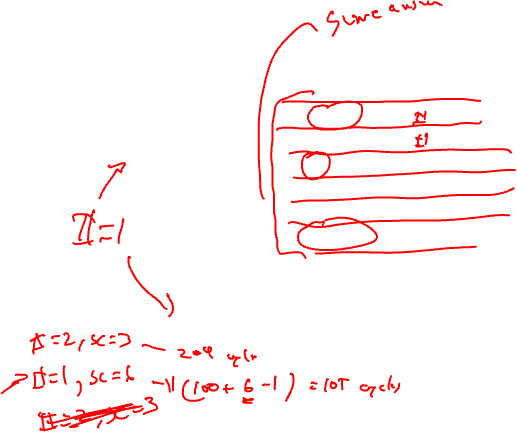 Same answer
II
II
II=1
II=2, sc=3 — 204 cycles
II=1, sc=6 – 1(100+6-1) = 105 cycles
II=2, sc=3